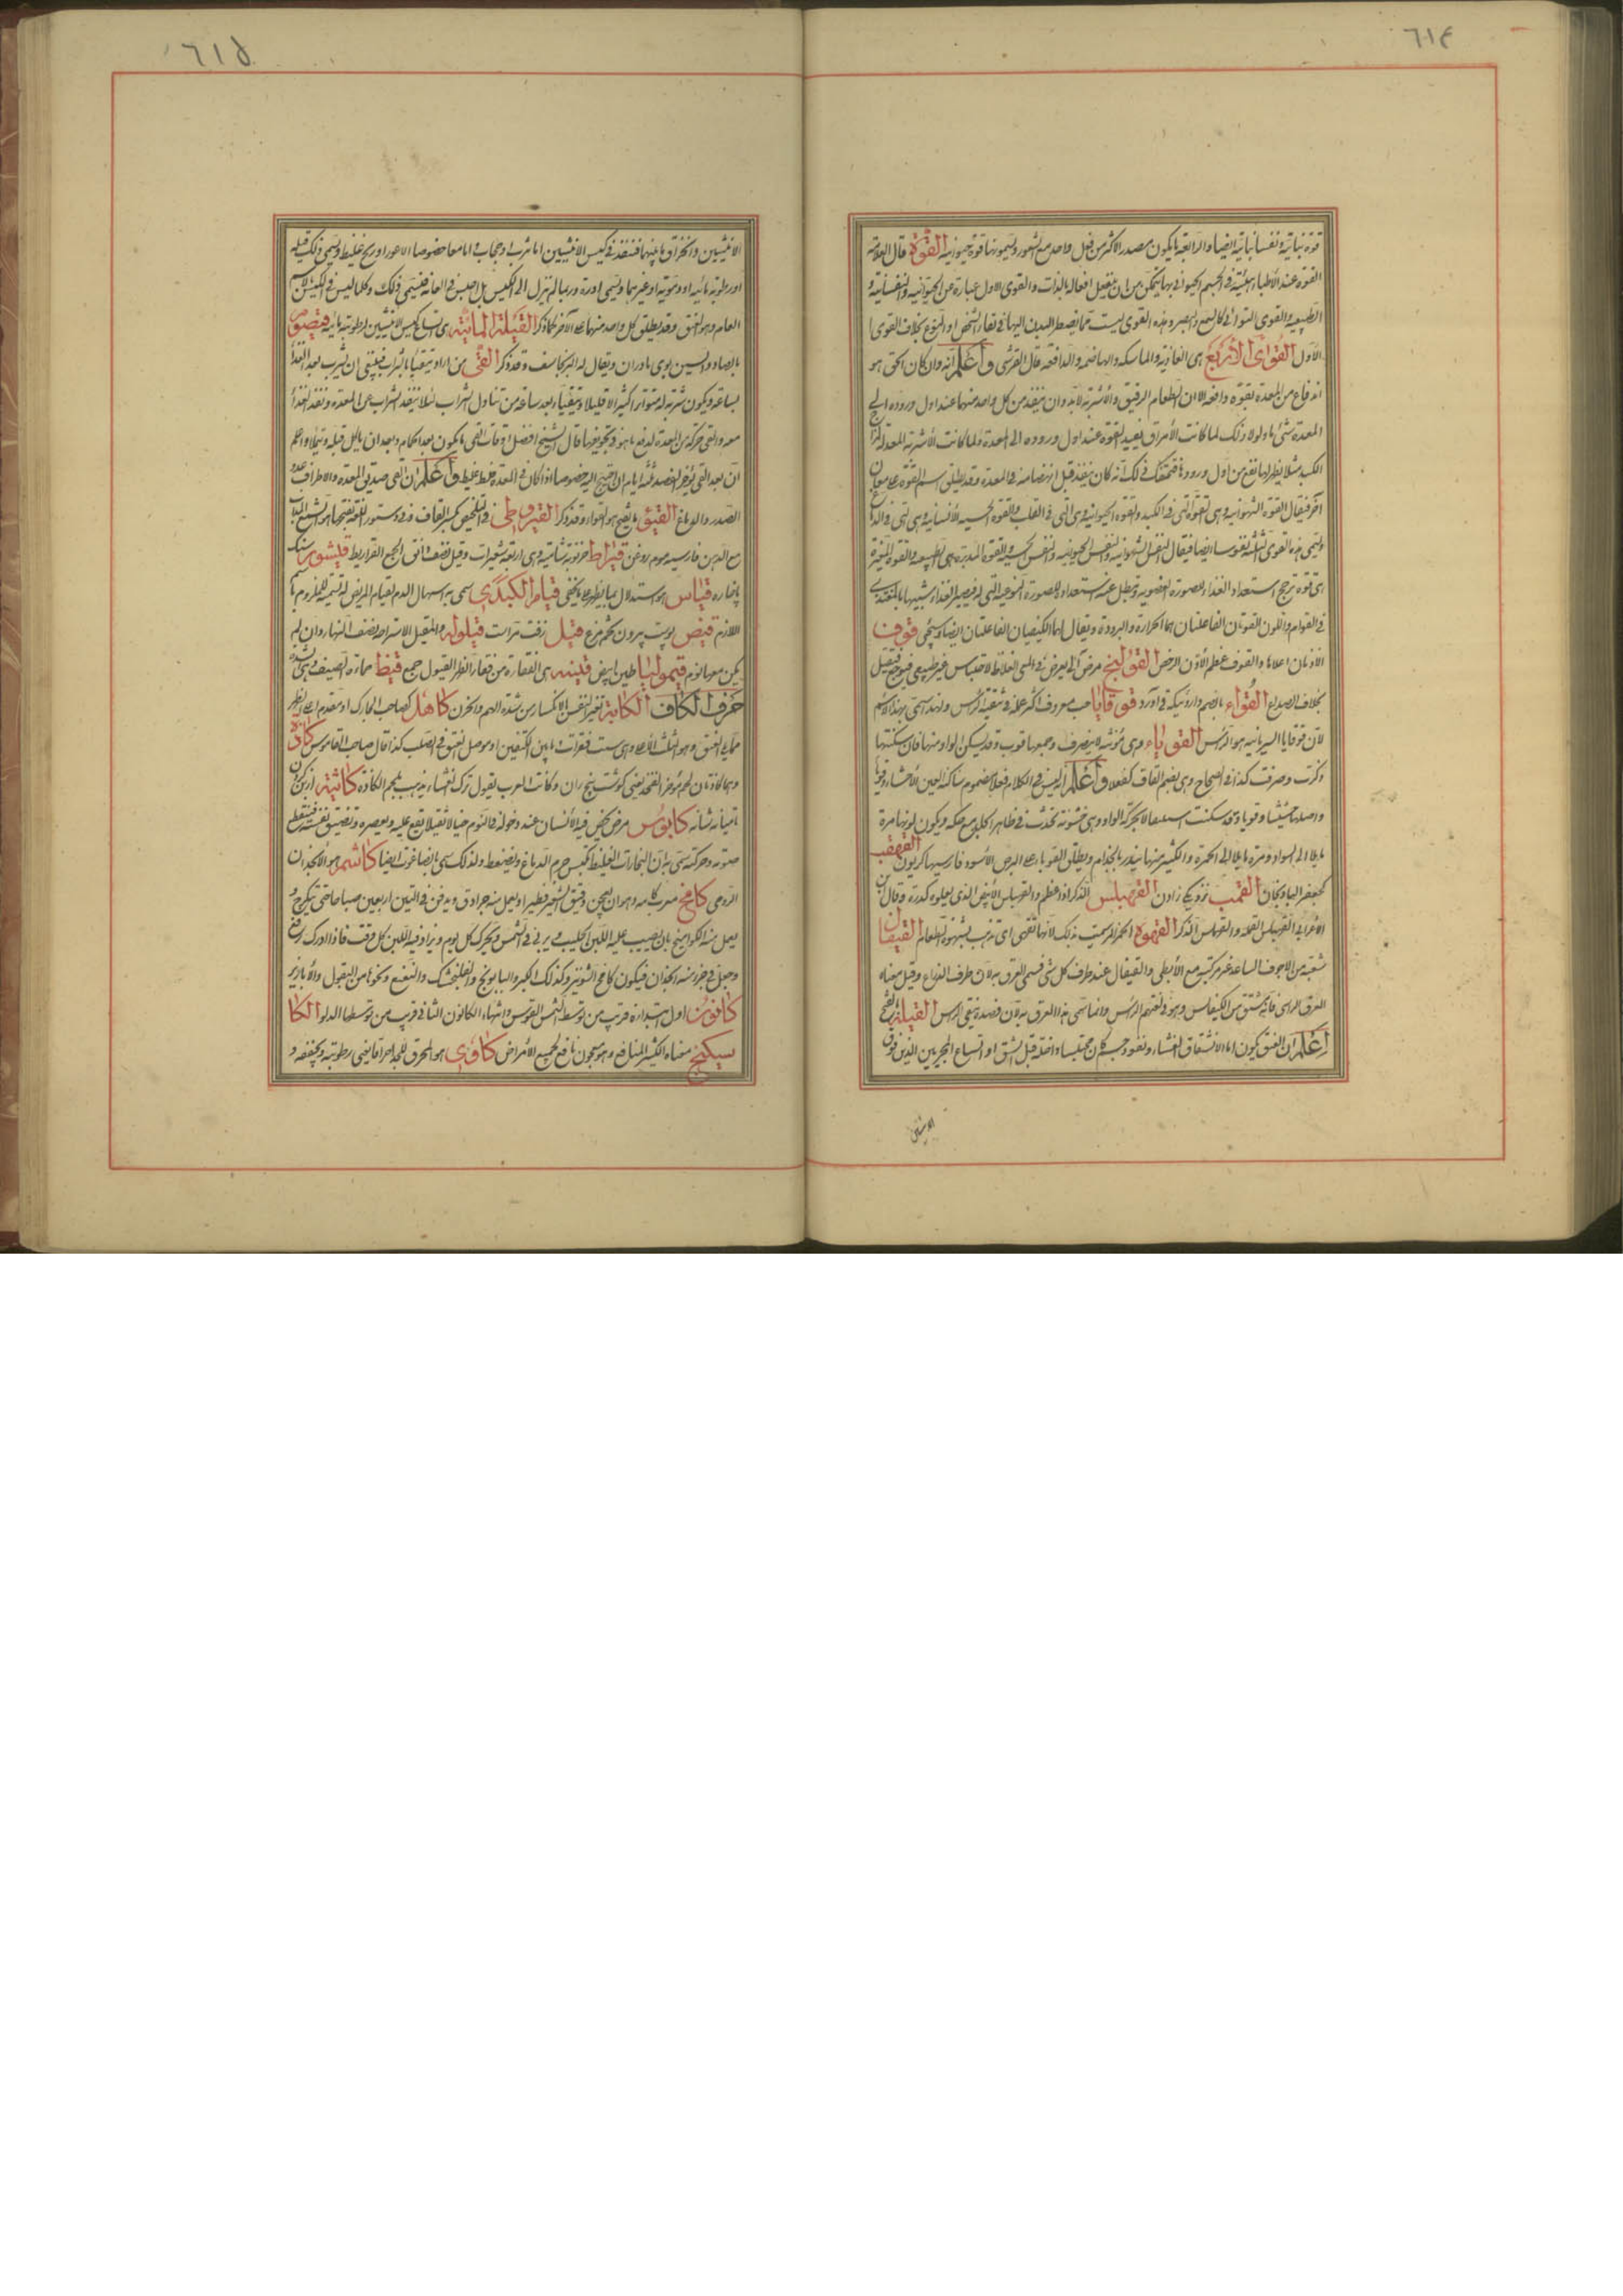 ٦١٤
قوة نباتية ونفسانية ايضا والرابعة ما يكون مصدر الاكثر من فعل واحد مع شعور ويسمونها قوة حيوانية القوة قال العلامة
القوة عند الأطباء هيئة في الجسم الحيواني بها يتمكن من ان يفعل افعاله بالذات والقوى الاول عبارة عن الحيوانية والنفسانية و
الطبيعية والقوى الثواني كالسمع والبصر وهذه القوى ليست مما يضطر البدن اليها في بقاء الشخص او النوع بخلاف القوى ا
الأول القوى الأربع هى الغاذية والماسكة والهاضمة والدافعة قال القرشى واعلم انه وان كان الحق هو
اندفاع من المعدة بقوة دافعة الا ان الطعام الرقيق والأشربة لا بد وان ينفذ من كل واحد منها عند اول وروده الى
المعدة شئ ما ولولا ذلك لما كانت الأمراق تفيد القوة عند اول وروده الى المعدة ولما كانت الأشربة المعدلة لمزاج
الكبد مثلا يظهر لها نفع من اول ورودها فتحققك في ذلك انه كان ينفذ قبل انهضامه في المعدة وقد يطلق اسم القوة على معان
اخر فيقال القوة الشهوانية وهى القوة التى فى الكبد والقوة الحيوانية وهى التى فى القلب والقوة الحسية الأنسانية وهى التى فى الدماغ
وتسمى هذه القوى الثلثة نفوسا ايضا فيقال النفس الشهوانية والنفس الحيوانية والنفس الحسية والقوة المدبرة هى الطبيعة والقوة المغيرة
هى قوة ترجح استعداد الغذاء للصورة العضوية وتبطل عنه استعداده للصورة النوعية التى له فيصير الغذاء شبيها بالمغتذى
فى القوام واللون القوتان الفاعلتان هما الحرارة والبرودة ويقال لهما الكيفيتان الفاعلتان ايضا وسيجئ قوف
الأذنان اعلاها والقوف عظم الأذن الرخص القولنج مرض آلى يعرض فى المعى الغلاظ لاحتباس غير طبيعى فيوجع ثقيل
بخلاف الصداع القواء بالضم قوقايا حب معروف اكثر عمله فى تنقية الراس ولهذا سمى بهذا الاسم
لان قوقايا السريانية هو الراس القوباء وهى مؤنثة لا ينصرف وجمعها قوب وقد يسكن الواو منها فان سكنتها
ذكرت وصرفت كذا فى الصحاح وهى بضم القاف كفعلا واعلم انه ليس فى الكلام فعلاء مضموم ساكنة العين الا خشاء وقوباء
واصلها خششا وقوبا وقد سكنت استثقالا لحركة الواو وهى خشونة تحدث فى ظاهر الجلد مع حكة ويكون لونها مرة
مايلا الى السواد ومرة مايلا الى الحمرة والكثير منها ينذر بالجذام ويطلق القوبا على البرص الأسود فارسيها كريون القهقب
كجعفر الباذنجان القهبلس الذكر اذا عظم والقهبلس الأبيض الذى يعلوه كدرة وقال ابن
الأعرابى القهبلس القملة والقهبلس الذكر القهوة الخمر سميت بذلك لأنها تقهى اى تذهب بشهوة الطعام القيفال
شعبة من الاجوف الساعد غير مركبة مع الأبطى والقيفال عند طرف كل شئ فسمى العرق به لان طرف الذراع وقيل معناه
العرق الراسى فانه مشتق من الكيفالس وهو فى لغتهم الراس وانما سمى هذا العرق به لان فصده ينقى الراس القيلة بالفتح
اعلم ان الفتق يكون اما لانشقاق الغشاء ونفوذ جسم كان محتبسا داخله قبل الشق او اتساع المجريين الذين فوق
الانثيين
٦١٥
الانثيين وانخراق ما بينهما فتنفذ فى كيس الانثيين اما ثرب او حجاب واما معا خصوصا الاعور او ريح غليظ ويسمى ذلك قيلة
او رطوبة مائية او دموية او غيرهما ويسمى ادرة وربما لم ينزل الى الكيس بل احتبس فى العانة فيسمى ذلك وكلما ليس فى الكيس بالاسم
العام وهو الفتق وقد يطلق كل واحد منها على الآخر كما ذكر القيلة المائية هى اتساع كيس الانثيين لرطوبة مائية قيصوم
بالصاد والسين بوى مادران ويقال له البرنجاسف وقد ذكر القئ من اراد تقيأ بالشراب فينبغى ان يشرب بعد الغذا
بساعة ويكون شربه له متواترا كثيرا لا قليلا ويتقيأ بعد ساعة من تناول الشراب لئلا ينفذ الشراب عن المعدة وتنفذ الغذا
معه والقئ حركة من المعدة لدفع ما هو فى تجويفها قال الشيخ افضل اوقات القئ ما يكون بعد الحمام وبعد ان ياكل قبله وتملا واعلم
ان بعد القئ يؤخر الفصد ثلثة ايام ان احتيج اليه خصوصا اذا كان فى المعدة خلط غليظ واعلم ان القئ صديق المعدة والاطراف عدو
الصدر والدماغ القيق القيروطى فى التلخيص بكسر القاف وفى دستور اللغة بفتحها هو الشمع المذاب
مع الدهن فارسيه موم روغن قيراط خرنوبة شامية وهى اربعة شعيرات وقيل نصف دانق الجمع القراريط قيشور سنك
پا خاره قياس هو استدلال بما يظهر على ما يخفى قيام الكبدى سمى به اسهال الدم لقيام المريض له تسمية للملزوم باسم
اللازم قيض پوست بيرون تخم مرغ قيل زفت تراست قيلوله والمقيل الاستراحة نصف النهار وان لم
يكن معها نوم قيموليا طين ابيض قينه هى الفقارة من فقار الظهر القيول جمع قيظ حمارة الصيف وهى اشده
حرف الكاف الكابة تغير النفس بالانكسار من شدة الهم والحزن كاهل كصاحب الحارك او مقدم اعلى الظهر
مما يلى العنق وهو الثلث الأعلى وهى ست فقرات ما بين الكتفين او موصل العنق فى الصلب كذا قال صاحب القاموس كاذة
وهما كاذتان لحم مؤخر الفخذ يعنى گوشت بيخ ران وكانت العرب يقول ترك العشاء يذهب بلحم الكاذة كاثبة از بن گردن
تا ميانه شانه كابوس مرض يحس فيه الأنسان عند دخوله فى النوم خيالا ثقيلا يقع عليه ويعصره وتضييق نفسه فينقطع
صوته وحركته سمى به لان البخارات الغليظة تكبس جرم الدماغ وتضغطه ولذلك سمى بالضاغوت ايضا كاشم هو الأنجدان
الرومى كامخ معرب كامه وهو ان يعجن دقيق الشعير فطيرا ويعمل منه جرادق ويدفن فى التبن اربعين صباحا حتى يتكرج و
يعمل منه الكواميخ بان يصب عليه اللبن الحليب ويربى فى الشمس ويحرك كل يوم ويزاد فيه اللبن كل وقت فاذا ادرك رفع
وجعل فى جزء منه انجدان فيكون كامخ الشونيز وكذلك الكبر والبابونج والفلنجمشك والنعنع ونحوها من البقول والأبازير
كانون اول ابتداؤه قريب من توسط الشمس القوس وانتهاء الكانون الثانى قريب من توسطها الدلو الكا
سكينج معناه الكثير المنافع وهو معجون نافع لجميع الأمراض كاوى هو المحرق للجلد احراقا يفنى رطوبته ويجففه و